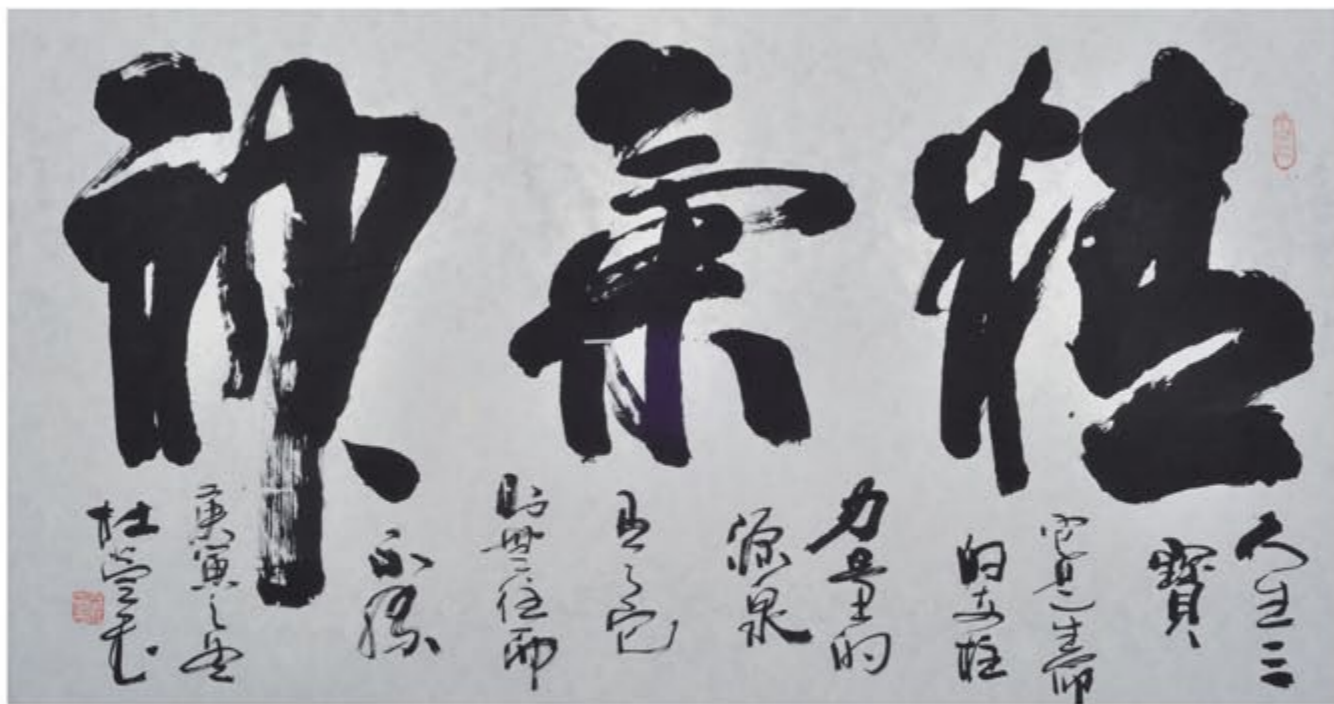 精氣神
人生三
寶
它是生命
的支柱
力量的
源泉
了它
無往而
不勝
庚寅之
杜